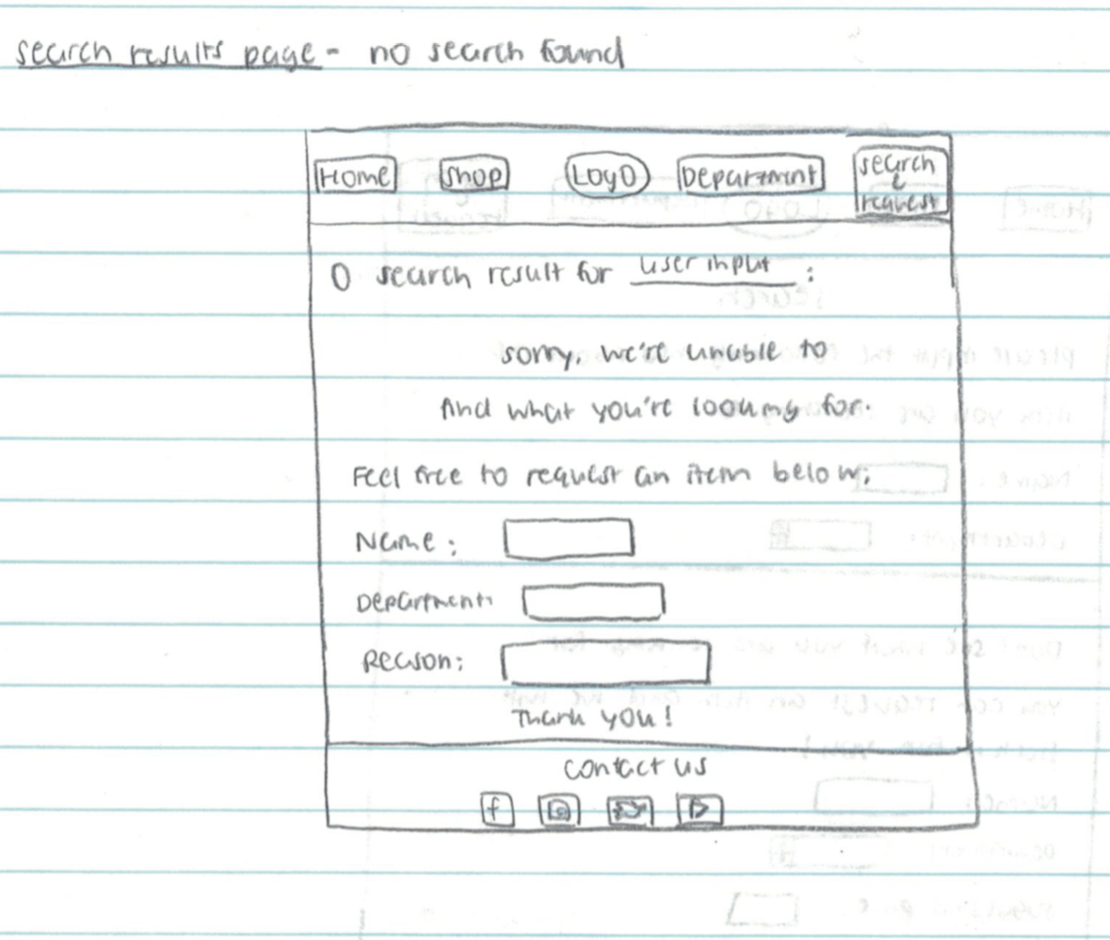 search results page - no search found
Home Shop Logo Department search & request
0 search result for user input :
sorry, we're unable to
find what you're looking for.
Feel free to request an item below:
Name:
Department:
Reason:
Thank you!
contact us
f